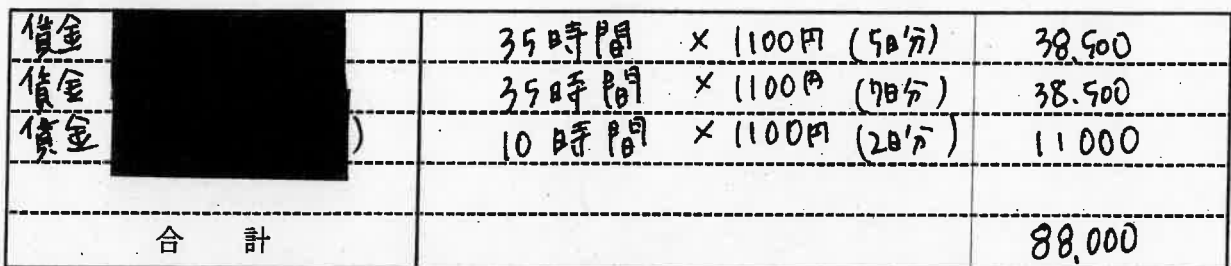 賃金 35時間 × 1100円 (5日分) 38,500
賃金 35時間 × 1100円 (7日分) 38.500
賃金 ) 10時間 × 1100円 (2日分) 11000
合計 88,000